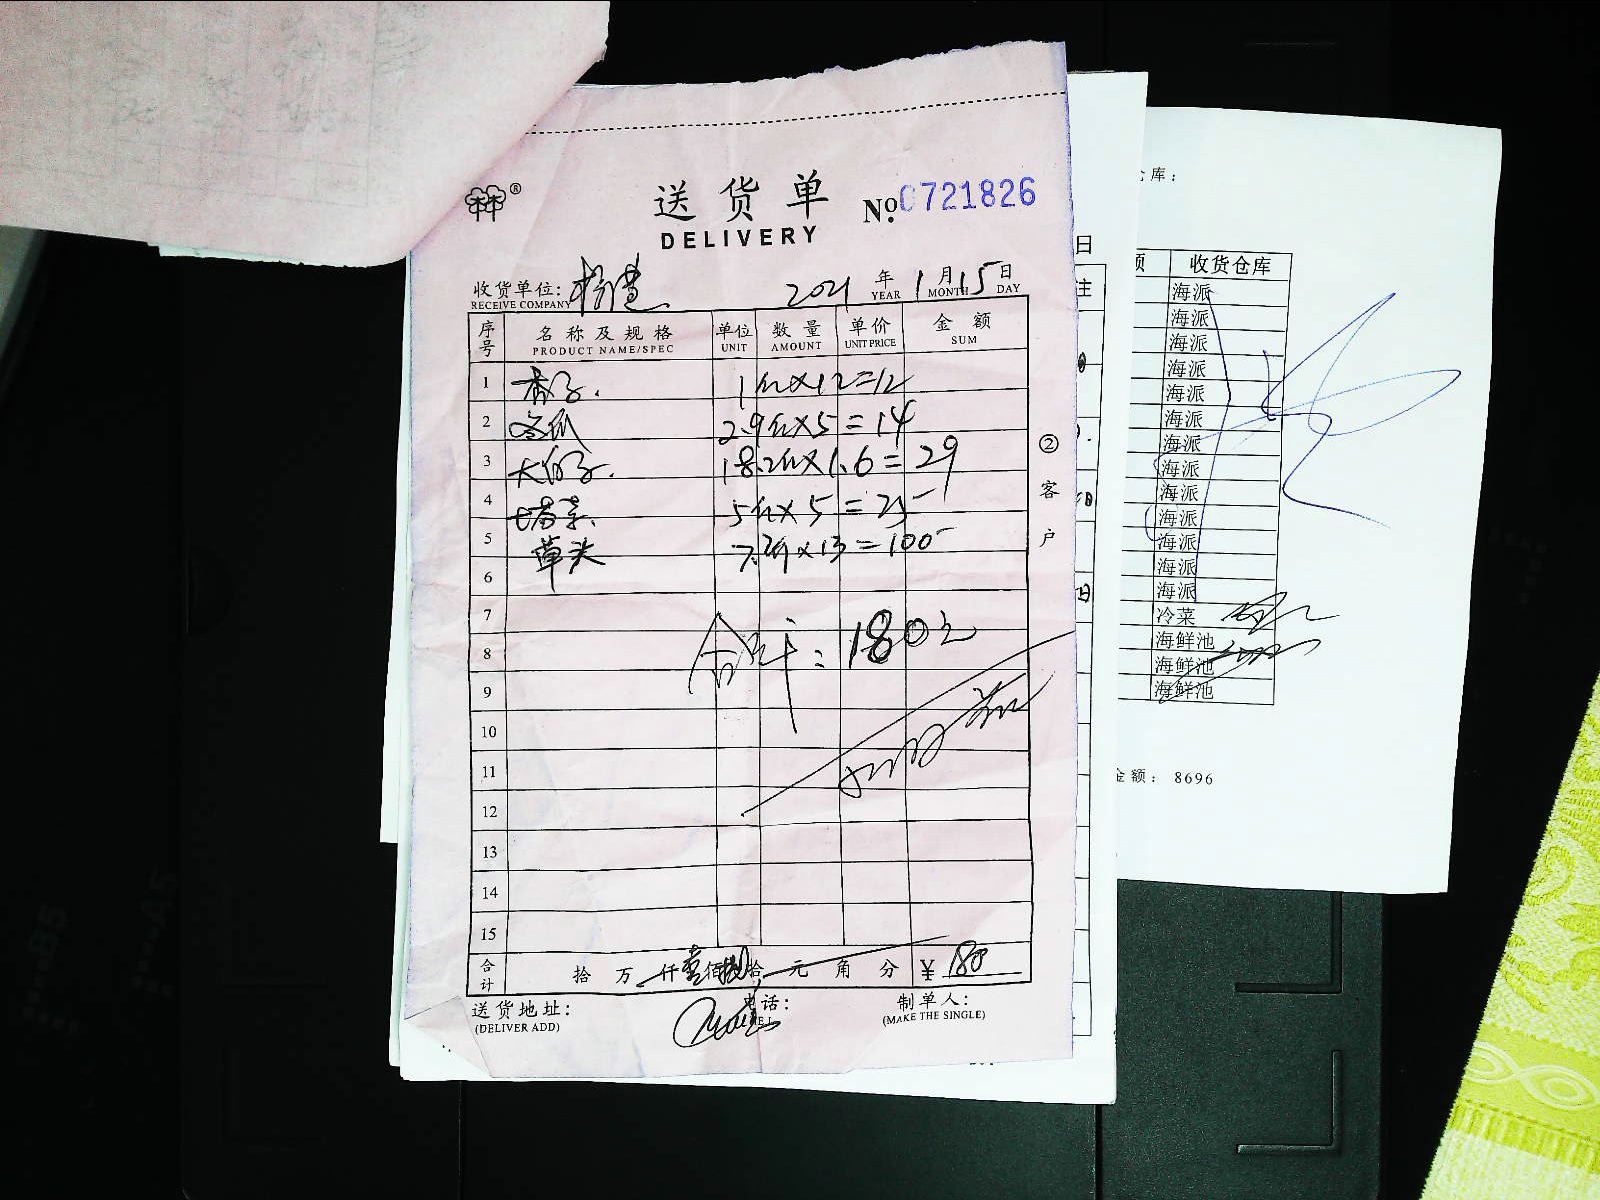 送货单
DELIVERY
№ 0721826
收货单位:
RECEIVE COMPANY
2021 年 1 月 15 日
YEAR MONTH DAY
序号 名称及规格 单位 数量 单价 金额
PRODUCT NAME/SPEC UNIT AMOUNT UNIT PRICE SUM
1 1斤×12=12
2 冬瓜 2.9斤×5=14
3 18.2斤×1.6=29
4 塔菜 5斤×5=25
5 草头 7.7斤×13=100
6
7
8 合计:180元
9
10
11
12
13
14
15
合计 拾 万 仟 壹 佰 捌 拾 元 角 分 ¥ 180
送货地址: 电话: 制单人:
(DELIVER ADD) (MAKE THE SINGLE)
②客户
仓库:
日
额 收货仓库
注
海派
海派
海派
海派
海派
海派
海派
海派
海派
海派
海派
海派
海派
冷菜
海鲜池
海鲜池
海鲜池
日
金额: 8696
B5
A5